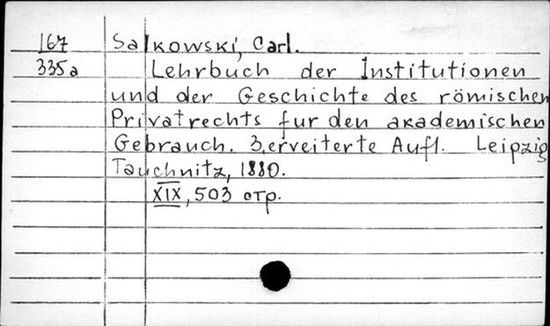 167 Salkowski, Carl.
335a Lehrbuch der Institutionen
und der Geschichte des römischen
Privatrechts fur den akademischen
Gebrauch. 3, erveiterte Aufl. Leipzig
Tauchnitz, 1880.
XIX, 503 стр.